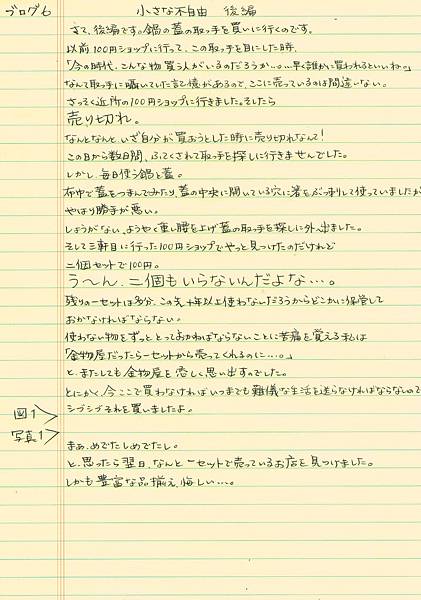 ブログ6 小さな不自由 後編
さて、後編です。鍋の蓋の取っ手を買いに行くのです。
以前100円ショップに行って、この取っ手を目にした時、
「今の時代、こんな物買う人がいるのだろうか…。早く誰かに買われるといいね。」
なんて取っ手に囁いていた記憶があるので、ここに売っているのは間違いない。
さっそく近所の100円ショップに行きました。そしたら
売り切れ。
なんとなんと、いざ自分が買おうとした時に売り切れなんて!
この日から数日間、ふてくされて取っ手を探しに行きませんでした。
しかし、毎日使う鍋と蓋。
布巾で蓋をつまんでみたり、蓋の中央に開いている穴に箸をぶっ刺して使っていましたが
やはり勝手が悪い。
しょうがない、ようやく重い腰を上げ蓋の取っ手を探しに外へ出ました。
そして三軒目に行った100円ショップでやっと見つけたのだけれど
二個セットで100円。
う〜ん、二個もいらないんだよな…。
残りの一セットは多分、この先十年以上使わないだろうからどこかに保管して
おかなければならない。
使わない物をずっととっておかねばならないことに苦痛を覚える私は
「金物屋だったら一セットから売ってくれるのに…。」
と、またしても金物屋を恋しく思い出すのでした。
とにかく、今ここで買わなければいつまでも難儀な生活を送らなければならないので
シブシブそれを買いましたよ。
図1
写真1
まぁ、めでたしめでたし。
と、思ったら翌日、なんと一セットで売っているお店を見つけました。
しかも豊富な品揃え、悔しい…。